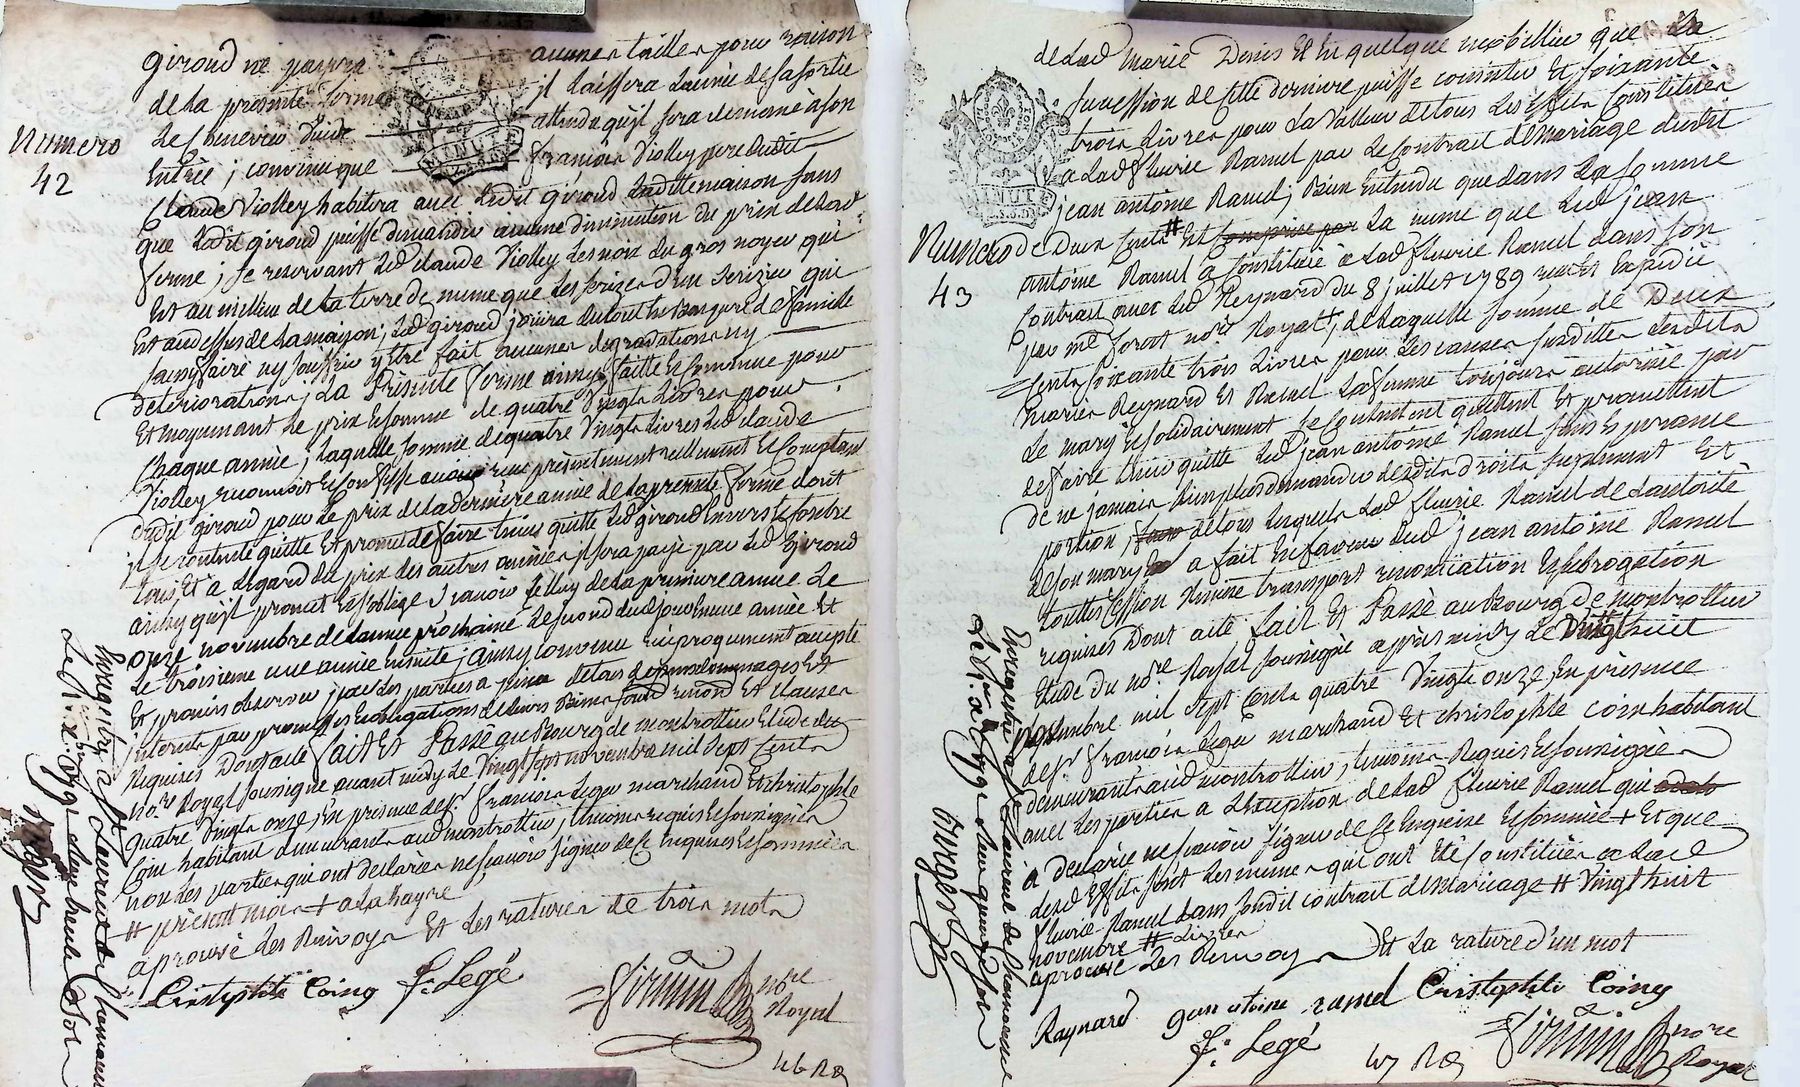 Numero
42
giroud ne payera aucunes tailles pour raison
de la presente ferme il laissera l'année de sa sortie
le chenevier vuide attendu qu'il sera de même à son
entrée; convenu que françois Violley pere dudit
Claude Violley habitera avec ledit giroud laditte maison sans
que ledit giroud puisse demander aucune diminution du prix de lad.
ferme; se reservant led claude Violley les noix du gros noyer qui
Est au milieu de la terre de même que les serizes d'un serizier qui
Est au dessus de la maison; led giroud jouira du tout en bon pere de famille
sans faire ny souffrir y être fait aucunes degradations ny
deteriorations; La Presente ferme ainsy faitte Es convenue pour
Et moyennant le prix Es somme de quatre Vingts Livres pour
Chaque année; laquelle somme de quatre Vingts livres led claude
Violley reconnoit Es confesse avoir reçue présentement réellement Es Comptant
dudit giroud pour le prix de la derniere année de la presente ferme dont
il se contente quitte Et promet de faire tenir quitte led giroud Envers Et contre
tous, Et a Legard du prix des autres années il sera payé par led giroud
ainsy qu'il promet Es s'oblige Sçavoir celluy de la premiere année Le
onze novembre de l'année prochaine le second dud jour en une année Et
Le troisieme une année ensuite; ainsy convenu reciproquement accepté
Et promis observer par les parties a peine de tous depens dommages Et
interets par promesses Es obligations de leurs biens renond Et clauses
Requises Dont acte fait Et Passé au Bourg de montrottier Etude du
no.re Royal soussigné avant midy le Vingt sept novembre mil sept Cents
quatre Vingts onze, En présence de S.r françois Legé marchand Et christophle
Coin habitant demeurants aud montrottier, temoins requis Es soussignés
non les parties qui ont declarées ne sçavoir signer de ce Enquises Es sommées
# présent mois + a la hayre
aprouvé les Renvoys Et les ratures de trois mots
Cristophle Coing F. Legé
Firmin no.re
Royal
46 R.
Enregistré a S.t Laurent de Chamousset
Numero
43
de Lad Marie Denis Et En quelque mobillier que la
succession de Cette derniere puisse consister Et soixante
trois Livres pour la Valleur de tous les Effets Constitués
a Lad fleurie Ramel par Le Contrat de Mariage dudit
jean antoine Ramel; bien Entendu que dans La somme
de Deux Cents # Est comprise La même que led jean
antoine Ramel a Constituée a Lad fleurie Ramel dans son
Contrat avec led Reynard du 8 juillet 1789 reçu Et Expédié
par me forest no.re Royal; de laquelle somme de Deux
Cents soixante trois Livres pour les causes susdittes lesdits
mariés Reynard Et Ramel la femme toujours autorisée par
Le mary Es solidairement se Contentent quittent Et promettent
de faire tenir quitte led jean antoine Ramel sans Esperance
de ne jamais rien plus demander desdits droits supplement Et
portion, de tous lesquels Lad fleurie Ramel de L'autorité
de son mary a fait En faveur dud jean antoine Ramel
touttes Cession demise transport renonciation Es subrogation
requises Dont acte fait Et Passé au Bourg de montrottier
Etude du no.re Royal soussigné après midy le Vingt huit
mil sept Cents quatre Vingts onze, En présence
de S.r françois Legé marchand Et christophle coin habitant
demeurants aud montrottier, temoins Requis Es soussignés
avec les parties a L'Exception de Lad fleurie Ramel qui
a declarée ne sçavoir signer de ce Enquise Es sommée + Et que
lesd Effets sont les mêmes qui ont Eté Constitués a Lad
fleurie Ramel dans sondit contrat de Mariage # Vingt huit
novembre # Livres
aprouvé Les Renvoys Et La rature d'un mot
Raynard gan antoine ramel Cristophle Coing
F. Legé
Firmin no.re
Royal
47 R.
Enregistré a S.t Laurent de Chamousset